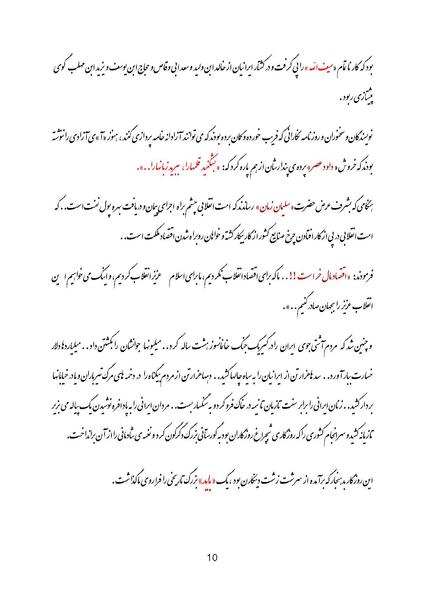 بود که کار ناتمام «سیف الله» را پی گرفت و در کشتار ایرانیان از خالد ابن ولید و سعد ابی وقاص و حجاج ابن یوسف و یزید ابن مهلب گوی
پیشتازی ربود.
نویسندگان و سخنوران و روزنامه نگارانی که فریب خورده و گمان برده بودند که می توانند آزادانه خامه پردازی کنند، هنوز «آ» ی آزادی را ننوشته
بودند که خروش «داود عصر» پرده ی پندارشان از هم پاره کرد که: «بشکنید قلمها را، ببرید زبانها را!..».
هنگامی که بشرف عرض حضرت «سلیمان زمان» رساندند که امت انقلابی چشم براه اجرای پیمان و دریافت سهم پول نفت است... که
امت انقلابی در پی از کار افتادن چرخ صنایع کشور از کار بیکار گشته و خواهان روبراه شدن اقتصاد مملکت است..
فرمودند: «اقتصاد مال خر است!!.. ما که برای اقتصاد انقلاب نکردیم، ما برای اسلام عزیز انقلاب کردیم، و اینک می خواهیم این
انقلاب عزیز را بجهان صادر کنیم..».
و چنین شد که مردم آشتی جوی ایران را درگیر یک جنگ خانمانسوز هشت ساله کرد.. میلیونها جوانشان را بکشتن داد.. میلیاردها دلار
خسارت ببار آورد.. سدها هزار تن از ایرانیان را به سیاهچالها کشید.. دهها هزار تن از مردم بیگناه را در دخمه های مرگ تیرباران و یا در خیابانها
بر دار کشید.. زنان ایرانی را برابر سنت تازیان تا نیمه در خاک فرو کرد و به سنگسار بست.. مردان ایرانی را به پادافره نوشیدن یک پیاله می بزیر
تازیانه کشید و سرانجام کشوری را که روزگاری شبچراغ روزگاران بود به گورستانی بزرگ دگرگون کرد و نغمه ی شادمانی را از آن برانداخت.
این روزگار بدهنجار که برآمده از سرشت زشت دینکاران بود، یک «باید» بزرگ تاریخی را فراروی ما گذاشت.
10